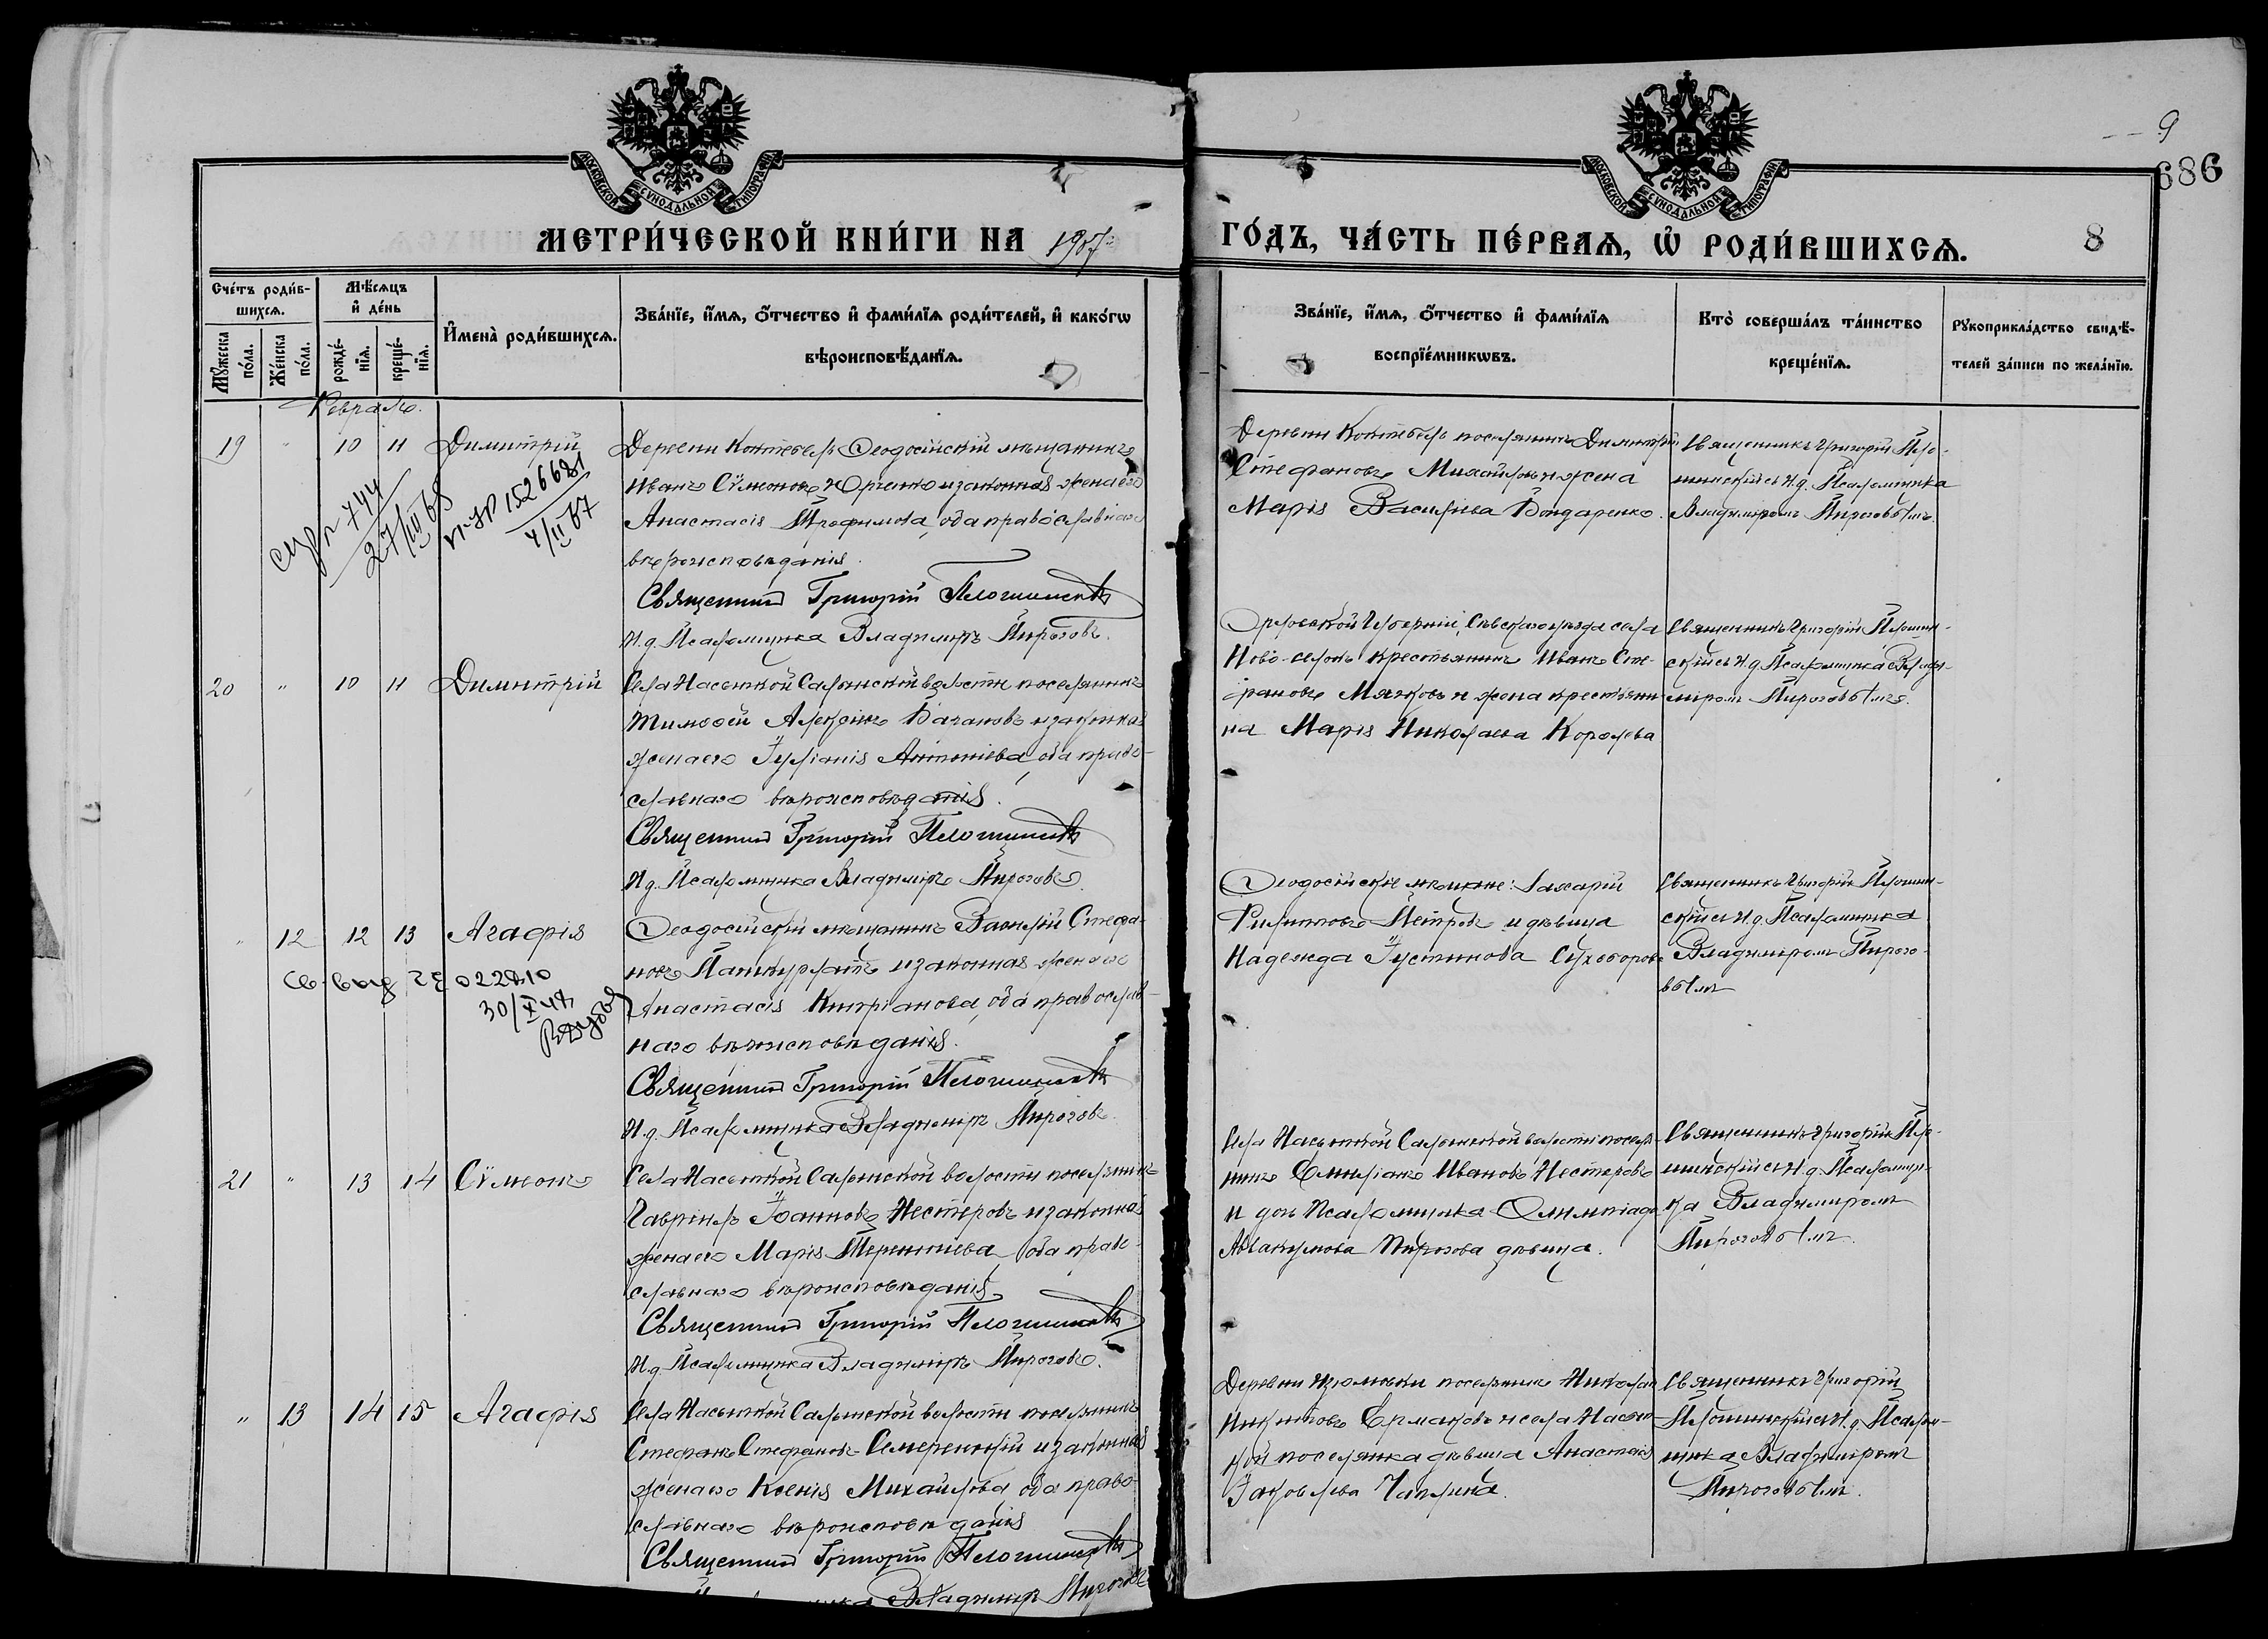 9
686
МОСКОВСКОЙ СѴНОДАЛЬНОЙ ТИПОГРАФІИ
МОСКОВСКОЙ СѴНОДАЛЬНОЙ ТИПОГРАФІИ
МЕТРИ́ЧЕСКОЙ КНИ́ГИ НА 1907
ГО́ДЪ, ЧА́СТЬ ПЕ́РВАѦ, Ѡ҆ РОДИ́ВШИХСѦ.
8
Сче́тъ роди́в-
шихсѧ.
Мꙋ́жеска по́ла.
Же́нска по́ла.
Мѣ́сѧцъ
и҆ де́нь
рожде́-нїѧ.
креще́-нїѧ.
И҆мена̀ роди́вшихсѧ.
Зва́нїе, и҆́мѧ, ѻ҆́тчество и҆ фами́лїѧ роди́телей, и҆ како́гѡ
вѣроисповѣ́данїѧ.
Зва́нїе, и҆́мѧ, ѻ҆́тчество и҆ фами́лїѧ
воспрїе́мникѡвъ.
Кто̀ соверша́лъ та́инство
креще́нїѧ.
Рꙋкоприкла́дство свидѣ́-
телей за́писи по жела́нїю.
Февраль.
19 " 10 11 Димитрій
Деревни Коктебель Ѳеодосійскій мѣщанинъ
Иванъ Сѵмеоновъ и законная жена его
Анастасія Трофимова, оба православнаго
вѣроисповѣданія.
Священник Григорій
И.д. Псаломщика Владиміръ Пироговъ.
27/III 68
1526681
4/II 67
Деревни Коктебель поселянинъ Димитрій
Стефановъ Михайловъ и жена
Марія Васильева Бондаренко.
Священникъ Григорій
съ И.д. Псаломщика
Владиміромъ Пироговымъ.
20 " 10 11 Димитрій
Села Насыпкой Салынской волости поселянинъ
Тимоѳей Алексіевъ и законная
жена его Іуліанія Антоніева, оба право-
славнаго вѣроисповѣданія.
Священник Григорій
И.д. Псаломщика Владиміръ Пироговъ
Орловской Губерніи, Сѣвскаго уѣзда села
Ново- крестьянинъ Иванъ Сте-
фановъ Мягковъ и жена крестьяни-
на Марія Николаева Королева
Священникъ Григорій
съ И.д. Псаломщика Влади-
міромъ Пироговымъ.
" 12 12 13 Агафія
Ѳеодосійскій мѣщанинъ Василій Стефа-
новъ и законная жена его
Анастасія Кипріанова, оба православ-
наго вѣроисповѣданія.
Священник Григорій
И.д. Псаломщика Владиміръ Пироговъ
022810
30/X
Ѳеодосійскіе мѣщане: Захарій
Филипповъ Петровъ и дѣвица
Надежда Іустинова
Священникъ Григорій
съ И.д. Псаломщика
Владиміромъ Пирого-
вымъ
21 " 13 14 Сѵмеонъ
Села Насыпкой Салынской волости поселянинъ
Гавріилъ Іоанновъ Нестеровъ и законная
жена его Марія Терентіева, оба право-
славнаго вѣроисповѣданія
Священник Григорій
И.д. Псаломщика Владиміръ Пироговъ.
Села Насыпкой Салынской волости поселя-
нинъ Емиліанъ Ивановъ Нестеровъ
и дочь Псаломщика Олимпіада
Аввакумова Пирогова дѣвица.
Священникъ Григорій
съ И.д. Псаломщи-
ка Владиміромъ
Пироговымъ.
" 13 14 15 Агафія
Села Насыпкой Салынской волости поселянинъ
Стефанъ Стефановъ и законная
жена его Ксенія Михайлова оба право-
славнаго вѣроисповѣданія
Священник Григорій
Владиміръ Пироговъ
Деревни Изюмовки поселянинъ Николай
Никитовъ Ермаковъ и села Насып-
кой поселянка дѣвица Анастасія
Іаковлева Чаплина.
Священникъ Григорій
съ И.д. Псалом-
щика Владиміромъ
Пироговымъ.